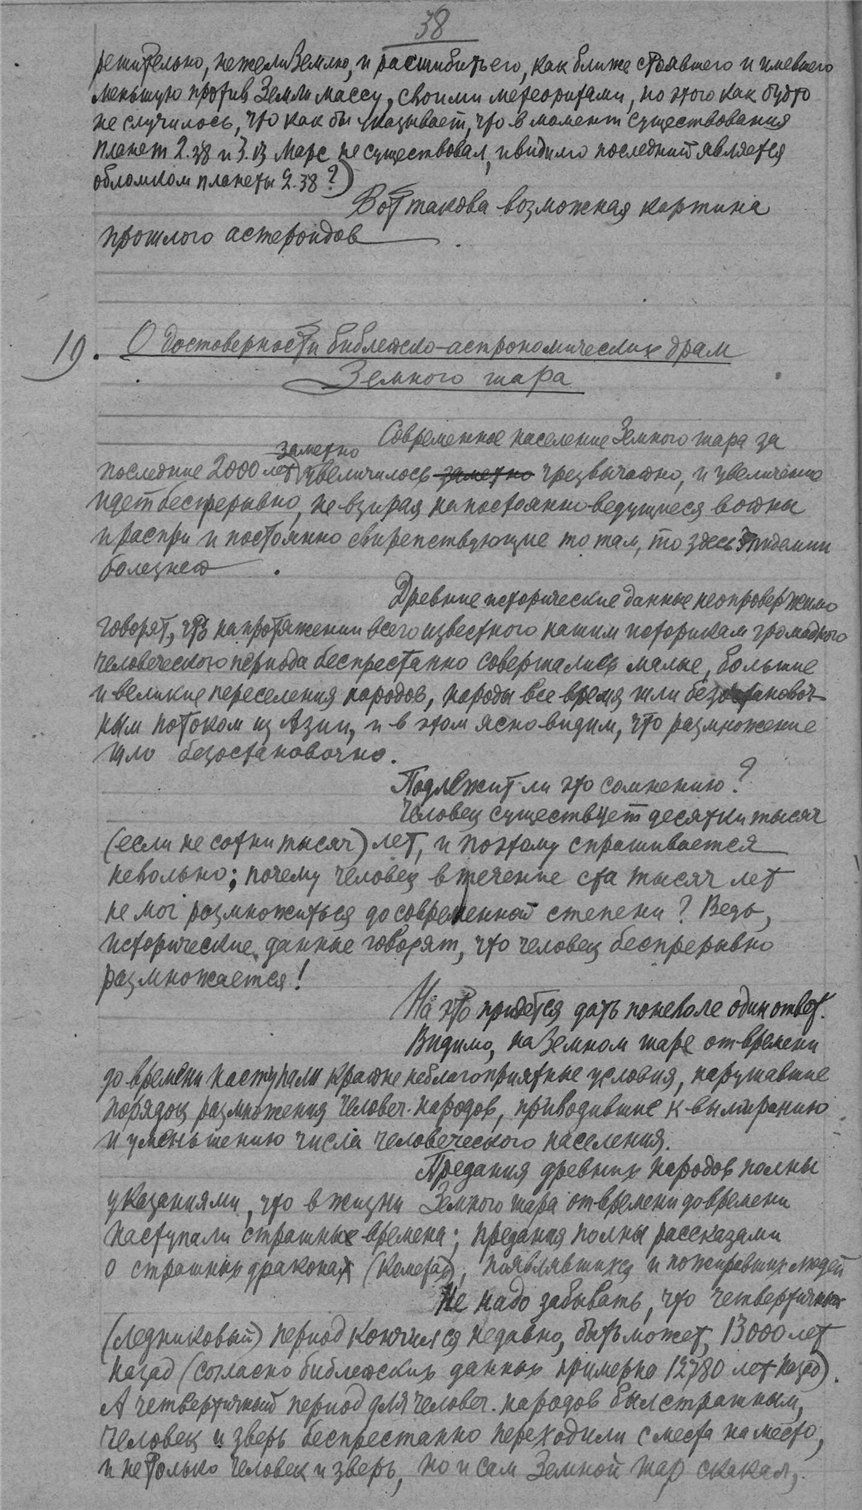 38
решительно, нежели Землю, и расшибить его, как ближе стоявшего и имевшего
меньшую против Земли массу, своими метеоритами, но этого как будто
не случилось, что как бы указывает, что в момент существования
планет 2.38 и 3.13 Марс не существовал, и видимо последний является
обломком планеты 2.38?)
Вот такова возможная картина
прошлого астероидов.
19. О достоверности библейско-астрономических драм
Земного шара
Современное население Земного шара за
заметно
последние 2000 лет увеличилось заметно чрезвычайно, и увеличение
идет беспрерывно, не взирая на постоянно ведущиеся войны
и распри и постоянно свирепствующие то там, то здесь эпидемии
болезней.
Древние исторические данные неопровержимо
говорят, что на протяжении всего известного нашим историкам громадного
человеческого периода беспрестанно совершались малые, большие
и великие переселения народов, народы все время шли безостановоч-
ным потоком из Азии, и в этом ясно видим, что размножение
шло безостановочно.
Подлежит ли это сомнению?
Человек существует десятки тысяч
(если не сотни тысяч) лет, и поэтому спрашивается
невольно; почему человек в течение ста тысяч лет
не мог размножиться до современной степени? Ведь,
исторические данные говорят, что человек беспрерывно
размножается!
На это придется дать поневоле один ответ.
Видимо, на Земном шаре от времени
до времени наступали крайне неблагоприятные условия, нарушавшие
порядок размножения человеч. народов, приводившие к вымиранию
и уменьшению числа человеческого населения.
Предания древних народов полны
указаниями, что в жизни Земного шара от времени до времени
наступали страшные времена; предания полны рассказами
о страшных драконах (кометах), появлявшихся и пожиравших людей
Не надо забывать, что четвертичный
(ледниковый) период кончился недавно, быть может, 13000 лет
назад (согласно библейских данных примерно 12780 лет назад).
А четвертичный период для человеч. народов был страшным,
человек и зверь беспрестанно переходили с места на место,
и не только человек и зверь, но и сам Земной шар скакал,